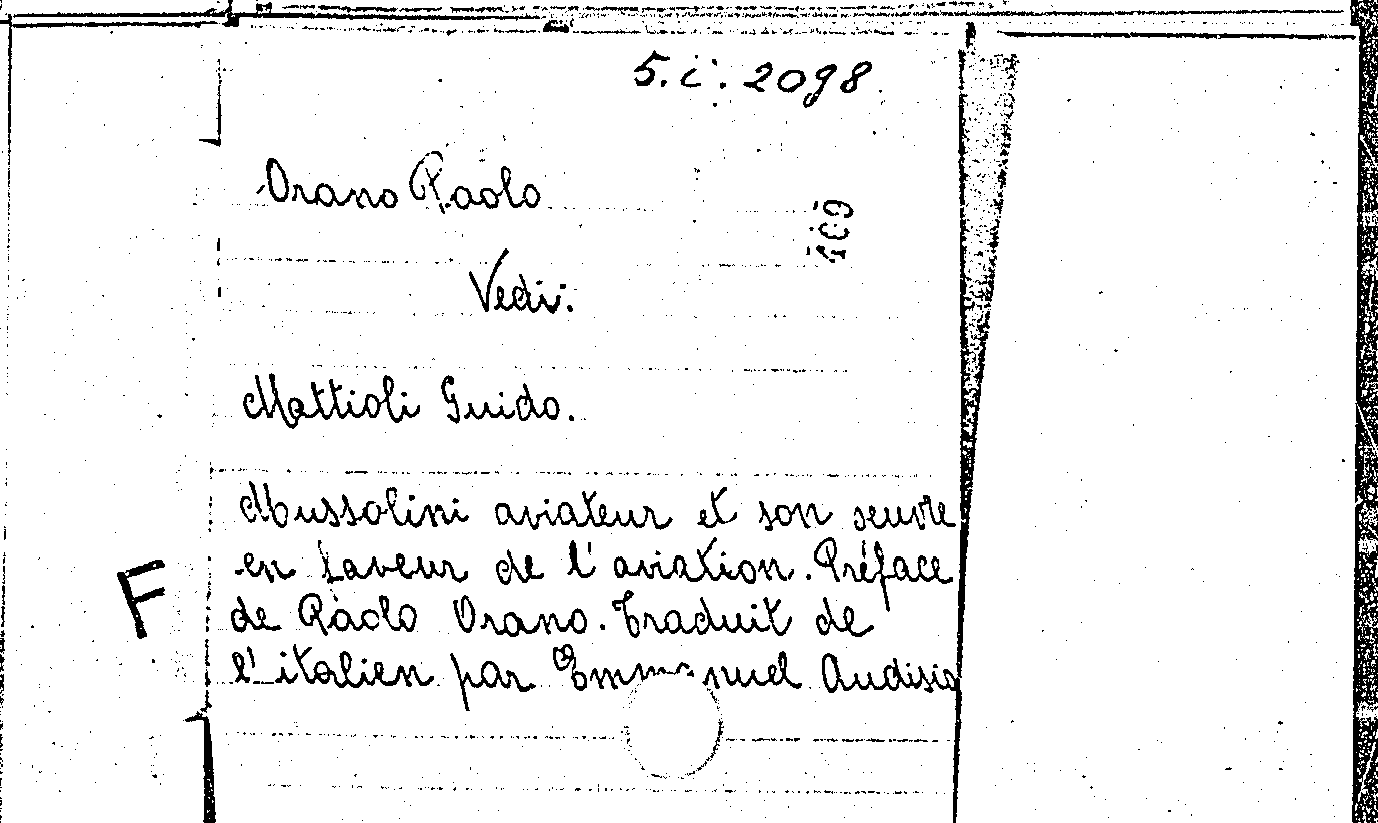 5.i. 2098
Orano Paolo
109
Vedi:
Mattioli Guido.
Mussolini aviateur et son oeuvre
en faveur de l'aviation. Préface
de Paolo Orano. Traduit de
F
l'italien par Emmanuel Audisio